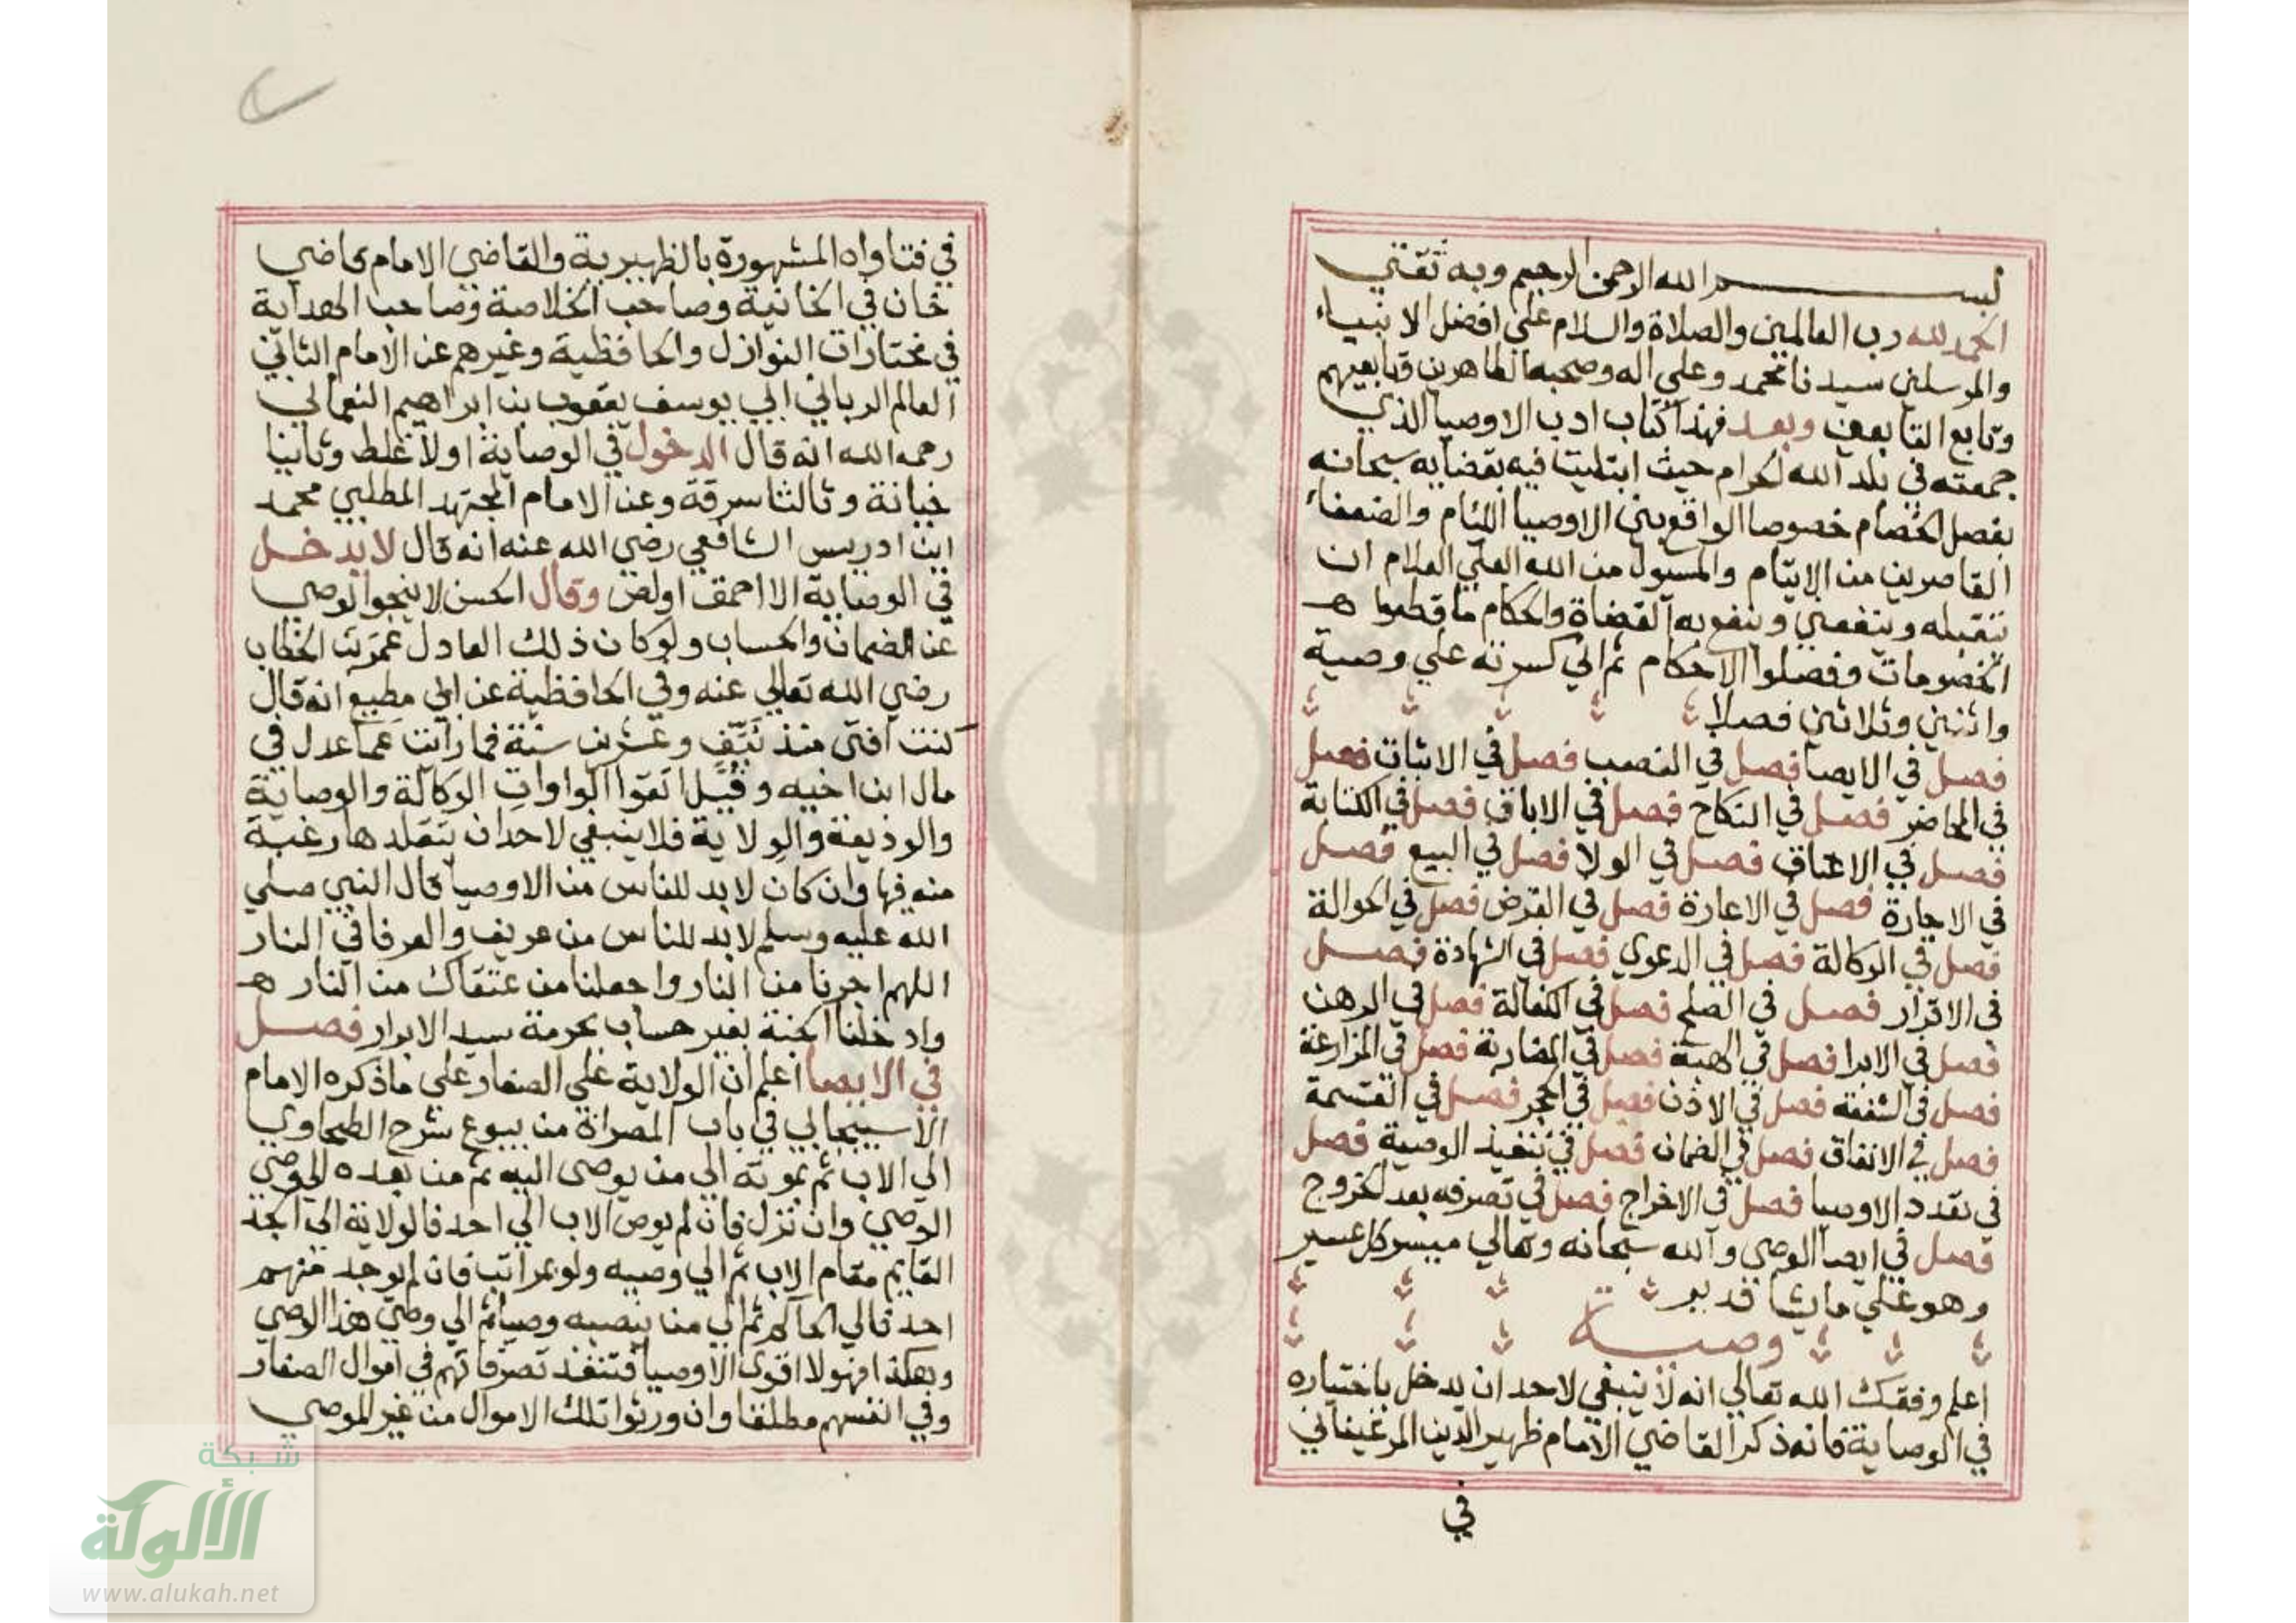 بسم الله الرحمن الرحيم وبه ثقتي
الحمد لله رب العالمين والصلاة والسلام علي افضل الانبياء
والمرسلين سيدنا محمد وعلي اله وصحبه الطاهرين وتابعيهم
وتابع التابعين وبعد فهذا كتاب ادب الاوصيا الذي
جمعته في بلد الله لحرام حيث ابتليت فيه بقضايه سبحانه
بفصل الخصام خصوصا الواقع بين الاوصيا اللئام والضعفاء
القاصرين من الايتام والمسول من الله العلي العلام ان
يتقبله وينفعني وينفع به القضاة والحكام ما قطعوا هـ
الخصومات وفصلوا الاحكام ثم اني كسرته علي وصية
واثنين وثلاثين فصلا
فصل في الايصا فصل في النصب فصل في الاثبات فصل
في المحاضر فصل في النكاح فصل في الاباق فصل في الكتابة
فصل في الاعتاق فصل في الولا فصل في البيع فصل
في الاجارة فصل في الاعارة فصل في القرض فصل في الحوالة
فصل في الوكالة فصل في الدعوي فصل في الشهادة فصل
في الاقرار فصل في الصلح فصل في الكفالة فصل في الرهن
فصل في الابرا فصل في الهبة فصل في المضاربة فصل في المزارعة
فصل في الشفعة فصل في الاذن فصل في الحجر فصل في القسمة
فصل في الانفاق فصل في الضمان فصل في تنفيذ الوصية فصل
في تعدد الاوصيا فصل في الاخراج فصل في تصرفه بعد الخروج
فصل في ايصا الوصي والله سبحانه وتعالي ميسر كل عسير
وهو علي ما يشا قدير
وصية
اعلم وفقك الله تعالي انه لا ينبغي لاحد ان يدخل باختياره
في الوصاية فانه ذكر القاضي الامام ظهير الدين المرغيناني
في
في فتاواه المشهورة بالظهيرية والقاضي الامام قاضي
خان في الخانية وصاحب الخلاصة وصاحب الهداية
في مختارات النوازل والحافظية وغيرهم عن الامام الثاني
العالم الرباني ابي يوسف يعقوب بن ابراهيم النعماني
رحمه الله انه قال الدخول في الوصاية اولا غلط وثانيا
خيانة وثالثا سرقة وعن الامام المجتهد المطلبي محمد
ابن ادريس الشافعي رضي الله عنه انه قال لا يدخل
في الوصاية الا احمق او لص وقال الحسن لا ينجو الوصي
عن الضمان والحساب ولو كان ذلك العادل عمر بن الخطاب
رضي الله تعالي عنه وفي الحافظية عن ابي مطيع انه قال
كنت افتي منذ نيف وعشرين سنة فما رايت عما عدل في
مال ابن اخيه وقيل اتقوا الواوات الوكالة والوصاية
والوديعة والولاية فلا ينبغي لاحد ان يتقلدها رغبة
منه فيها وان كان لا بد للناس من الاوصيا قال النبي صلي
الله عليه وسلم لا بد للناس من عريف والعرفا في النار
اللهم اجرنا من النار واجعلنا من عتقاك من النار هـ
وادخلنا الجنة بغير حساب بحرمة سيد الابرار فصل
في الايصا اعلم ان الولاية علي الصغار علي ما ذكره الامام
الاسبيجابي في باب المصراة من بيوع شرح الطحاوي
الي الاب ثم بموته الي من يوصي اليه ثم من بعده الي وصي
الوصي وان نزل فان لم يوص الاب الي احد فالولاية الي الجد
القايم مقام الاب ثم الي وصيه ولو بمراتب فان لم يوجد منهم
احد فالي الحاكم ثم الي من ينصبه وصيا ثم الي وصي هذا الوصي
وهكذا فهولا اقوي الاوصيا فتنفذ تصرفاتهم في اموال الصغار
وفي انفسهم مطلقا وان ورثوا تلك الاموال من غير الموصي
شبكة
الألوكة
www.alukah.net